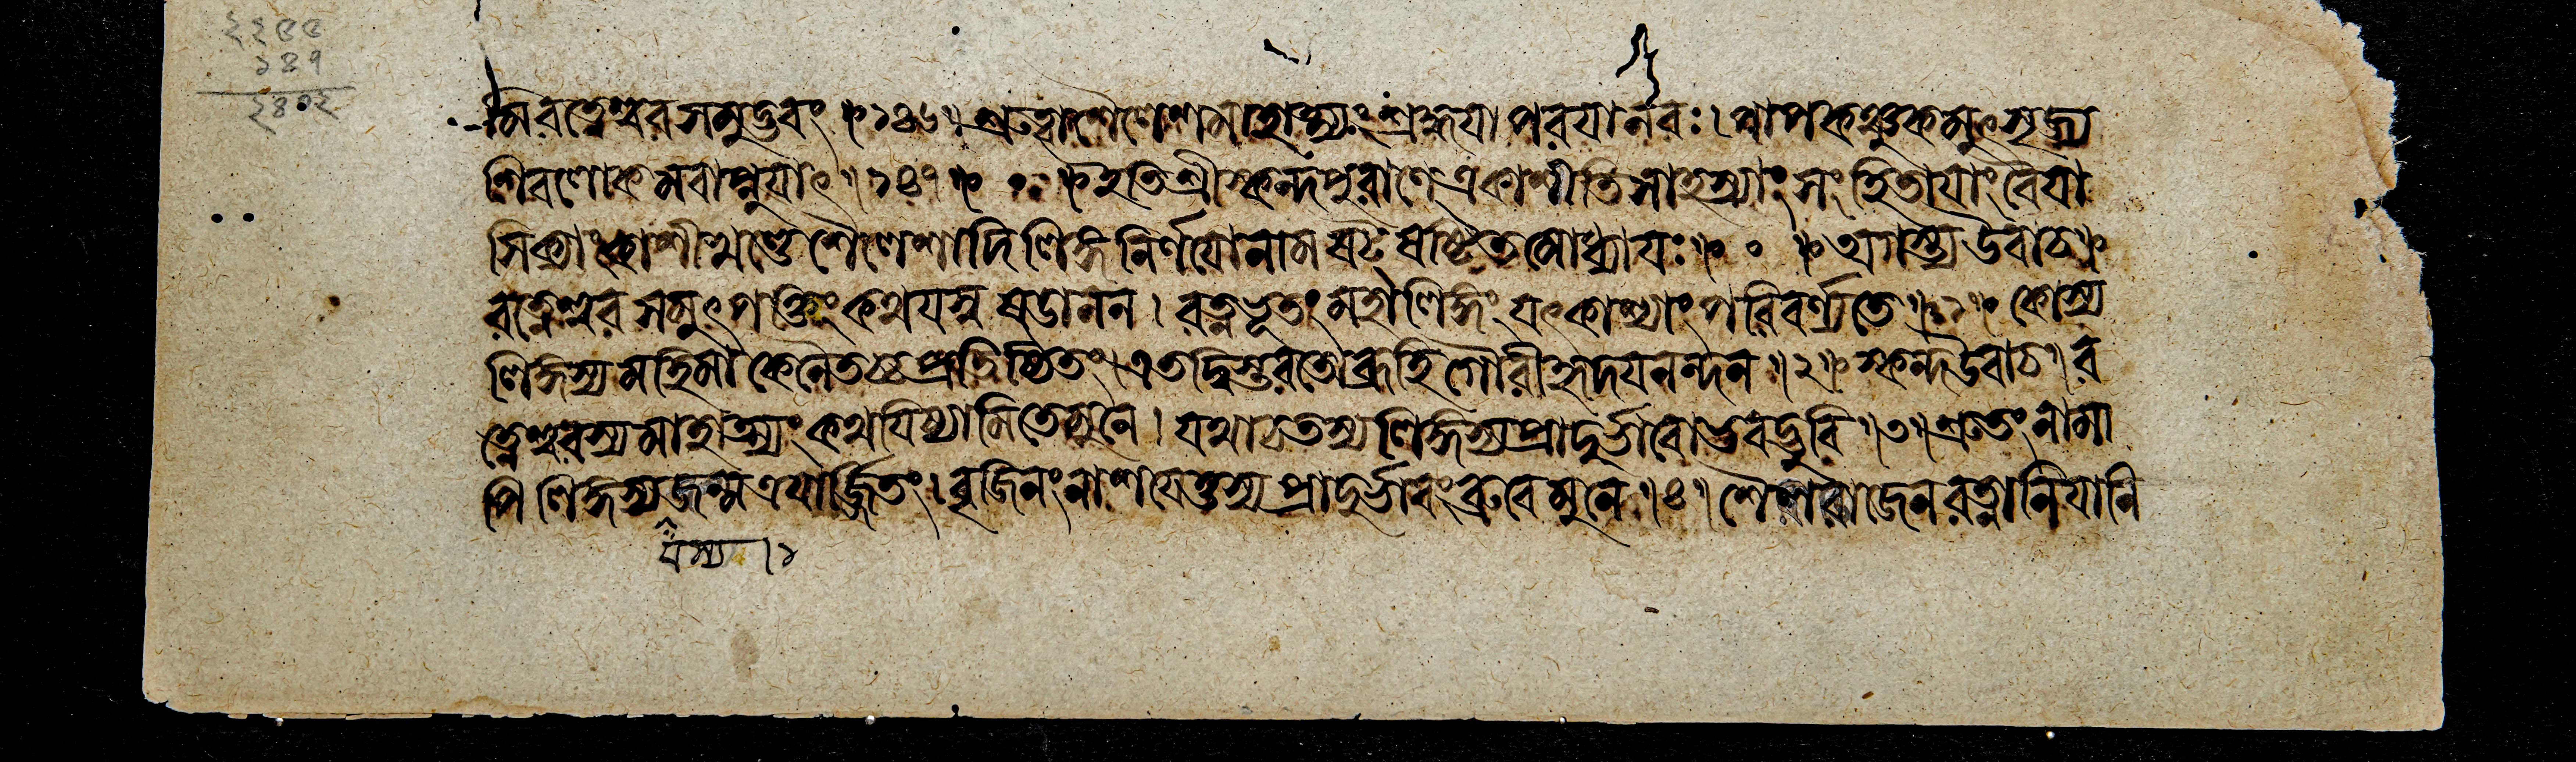 ২২৫৫
১৪৭
২৪০২
মি রত্নেশ্বরসমুদ্ভবং ॥ ১৪৬ ॥ শ্রুত্বা শৈলেশমাহাত্ম্যং শ্রদ্ধয়া পরয়া নরঃ । পাপকঞ্চুকমুৎসৃজ্য
শিবলোকমবাপ্নুয়াৎ ॥ ১৪৭ ॥ ০ ॥ ইতি শ্রীস্কন্দপুরাণে একাশীতিসাহস্র্যাং সংহিতায়াং বৈয়া
সিক্যাং কাশীখণ্ডে শৈলেশাদিলিঙ্গনির্ণয়ো নাম ষট্ষষ্টিতমোধ্যায়ঃ ॥ ০ ॥ অগস্ত্য উবাচ ॥
রত্নেশ্বরসমুৎপত্তিং কথয়স্ব ষডানন । রত্নভূতং মহালিঙ্গং যৎকাশ্যাং পরিবর্ণ্যতে ॥ ১ ॥ কোস্য
লিঙ্গস্য মহিমা কেনৈতচ্চ প্রতিষ্ঠিতং । এতদ্বিস্তরতো ব্রূহি গৌরীহৃদয়নন্দন ॥ ২ ॥ স্কন্দ উবাচ ॥ র
ত্নেশ্বরস্য মাহাত্ম্যং কথয়িষ্যামি তে মুনে । যথা চ তস্য লিঙ্গস্য প্রাদুর্ভাবো ভবদ্ভুবি ॥ ৩ ॥ শ্রুতং নামা
পি লিঙ্গস্য জন্মত্রয়ার্জ্জিতং । বৃজিনং নাশয়েত্তস্য প্রাদুর্ভাবং ব্রুবে মুনে ॥ ৪ ॥ শৈলরাজেন রত্নানি যানি
যস্য । ১